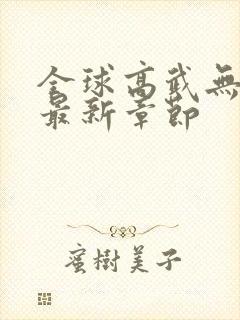 全球高武無
最新章節
蜜樹美子